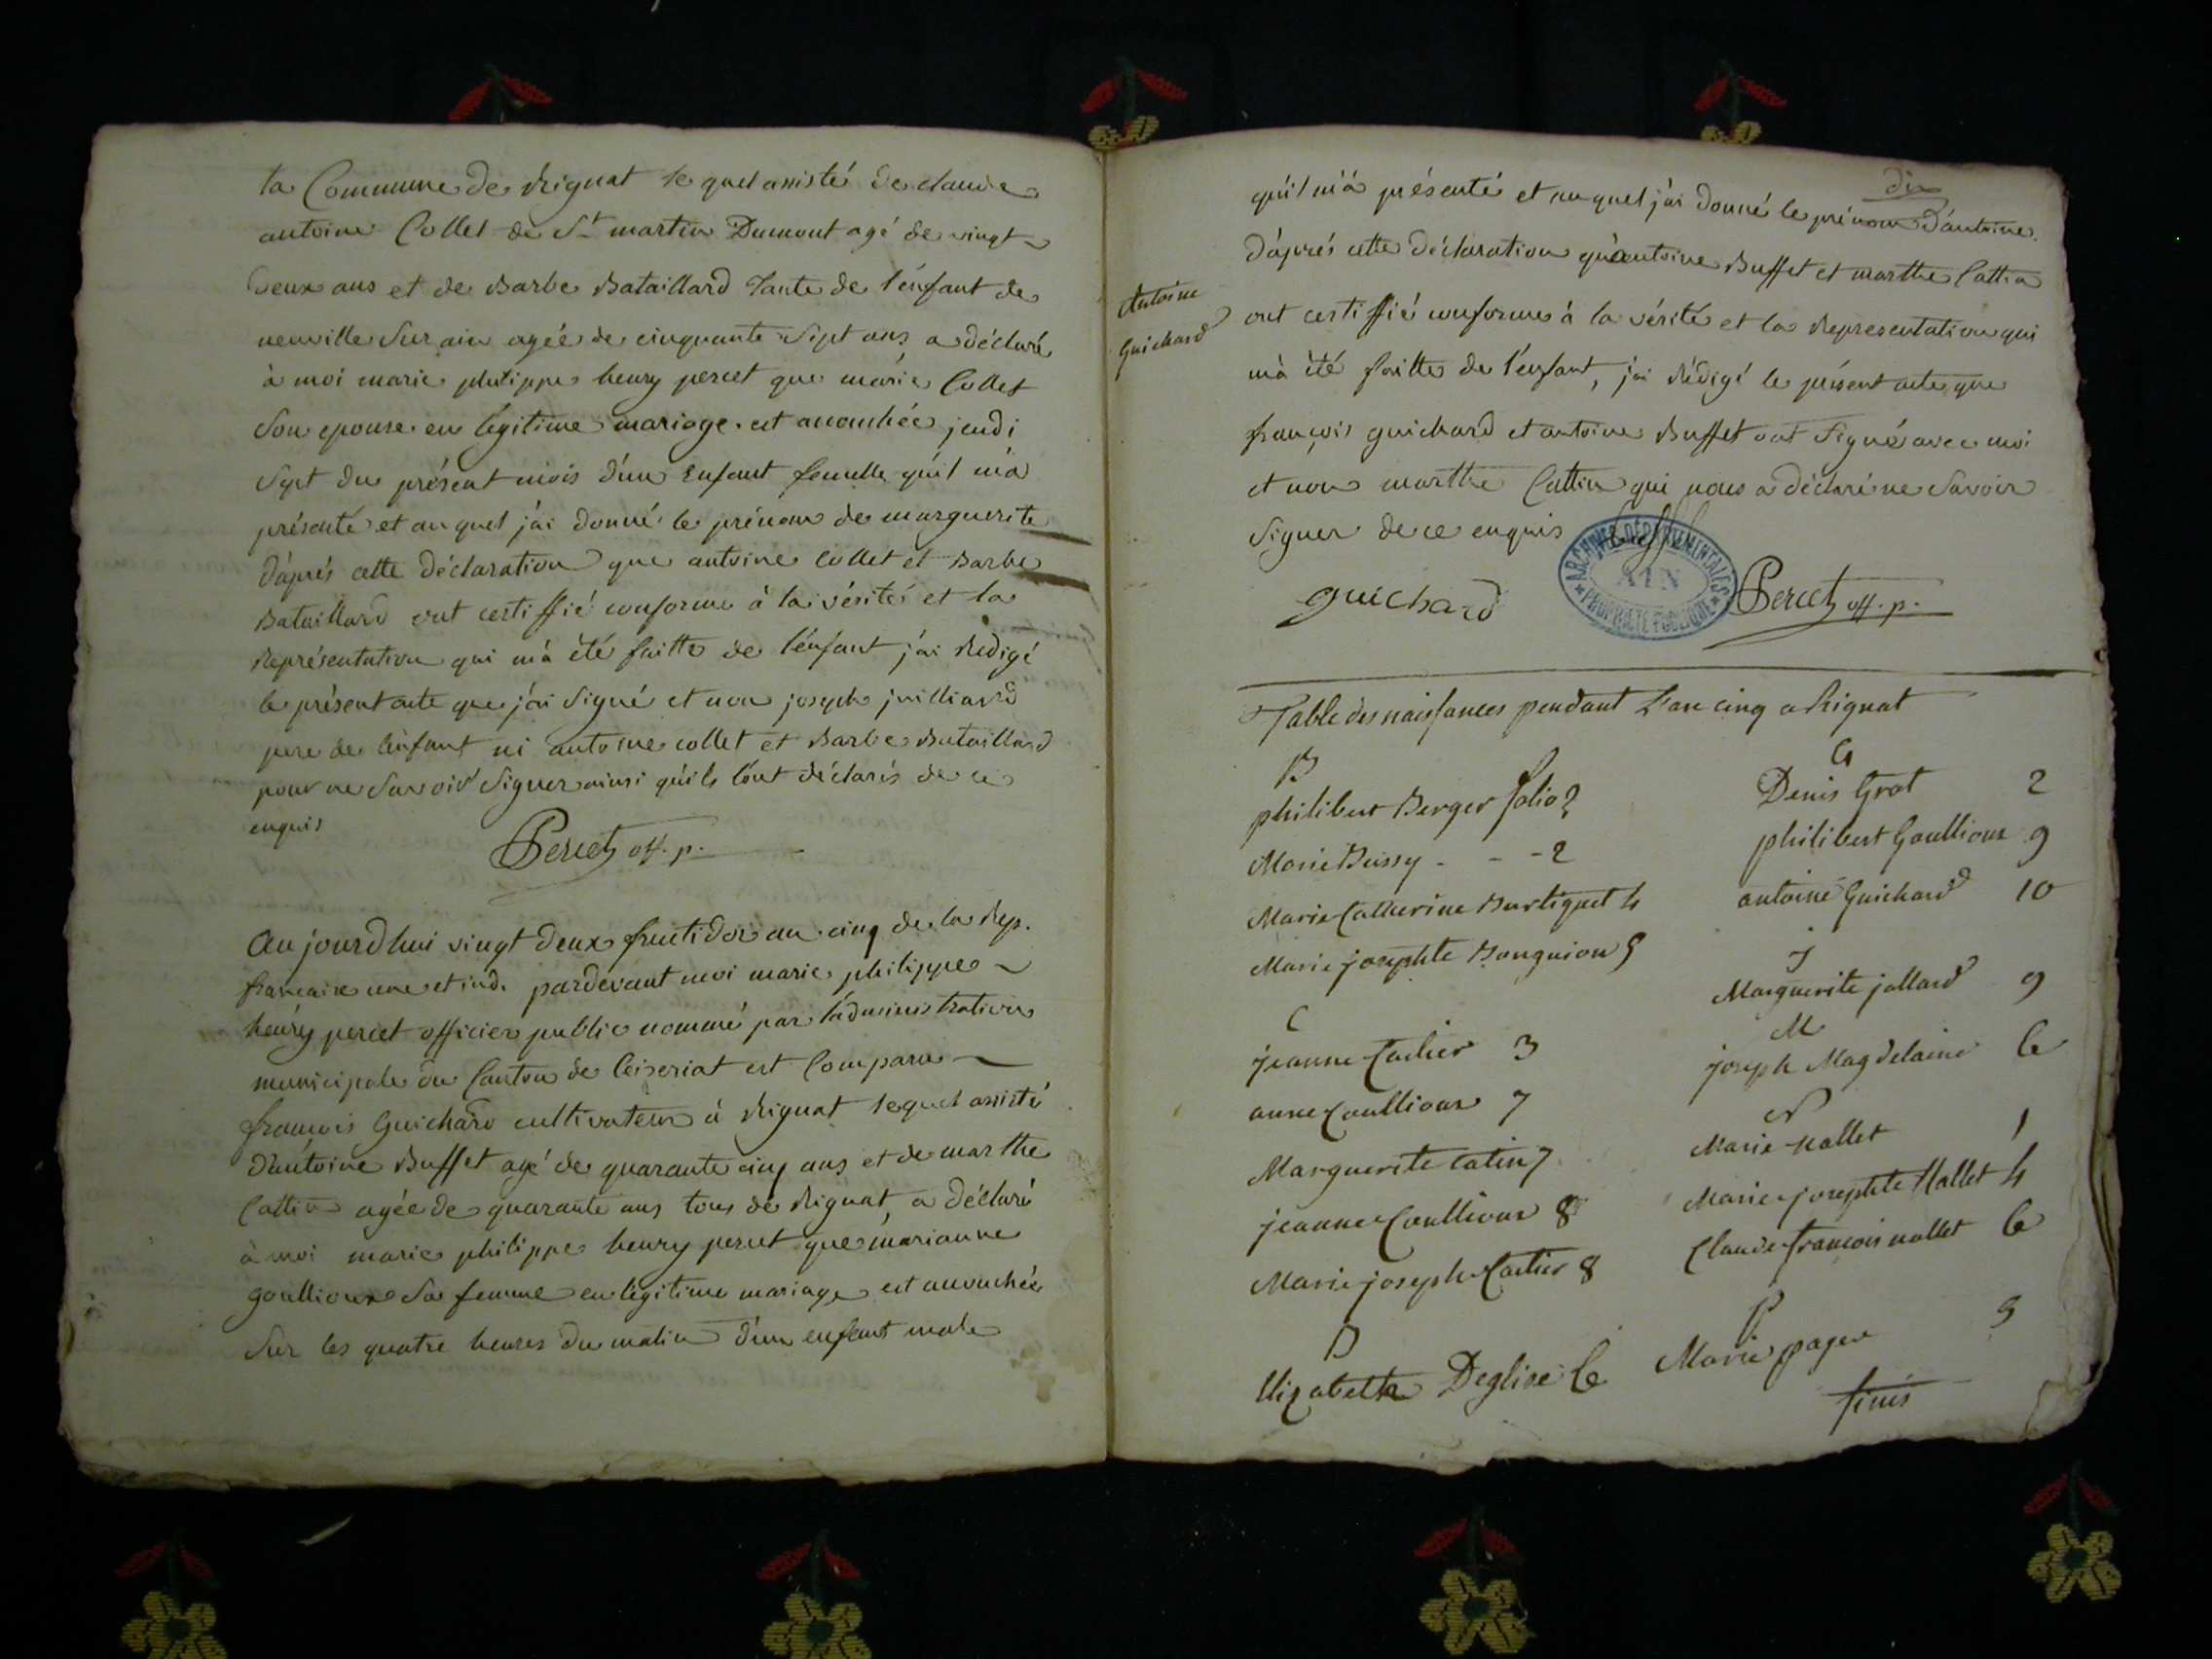 la Commune de Rignat lequel assisté de claude
antoine Collet de St martin Dumont agé de vingt
deux ans et de Barbe Bataillard Tante de l'énfant de
neuville Sur ain agée de cinquante Sept ans a déclaré
à moi marie philippe henry percet que marie Collet
Son epouse en légitime mariage est accouchée jeudi
Sept du présent mois d'un Enfant femelle qu'il m'a
présenté et auquel j'ai donné le prénom de marguerite
d'aprés cette déclaration que antoine Collet et Barbe
Bataillard ont certiffié conforme à la vérité et la
Représentation qui m'a été faitte de l'énfant j'ai Rédigé
le présent acte que j'ai Signé et non joseph juilliard
pere de l'énfant ni antoine collet et Barbe Bataillard
pour ne Savoir Signer ainsi qu'ils l'ont déclarés de ce
enquis
Percet off. p.
Au jourdhui vingt deux fructidor an cinq de la Rep.
francaise une et ind. pardevant moi marie philippe
henry percet officier public nommé par l'administration
municipale du Canton de Ceizeriat est Comparu
francois Guichard cultivateur à Rignat lequel assisté
d'antoine Buffet agé de quarante cinq ans et de marthe
Cattin agée de quarante ans tous de Rignat, a déclaré
à moi marie philippe henry percet que marianne
goullioux Sa femme en légitime mariage est accouchée
Sur les quatre heures du matin d'un enfant male
dix
qu'il m'a présenté et auquel j'ai donné le prénom d'antoine.
d'aprés cette déclaration qu'antoine Buffet et marthe Cattin
Antoine
Guichard
ont certiffié conforme à la vérité et la Representation qui
m'a été faitte de l'énfant, j'ai Rédigé le présent acte que
françois guichard et antoine Buffet ont Signé avec moi
et non marthe Cattin qui nous a déclaré ne Savoir
Signer de ce enquis
Buffet
ARCHIVES DÉPARTEMENTALES
AIN
PROPRIÉTÉ PUBLIQUE
guichard
Percet off. p.
Table des naissances pendant L'an cinq a Rignat
B
philibert Berger folio 2
Marie Bussy - - - 2
Marie Catherine Burtiguet 4
Marie josephte Bonguion 5
C
jeanne Carlier 3
anne Coullioux 7
Marguerite Catin 7
jeanne Coullioux 8
Marie joseph Carlier 8
D
Elizabeth Deglise 6
G
Denis Grot 2
philibert Goullioux 9
antoine Guichard 10
J
Marguerite jollard 9
M
joseph Magdelaine 6
N
Marie Nallet 1
Marie josephte Nallet 4
Claude francois nallet 6
P
Marie pager 5
finis